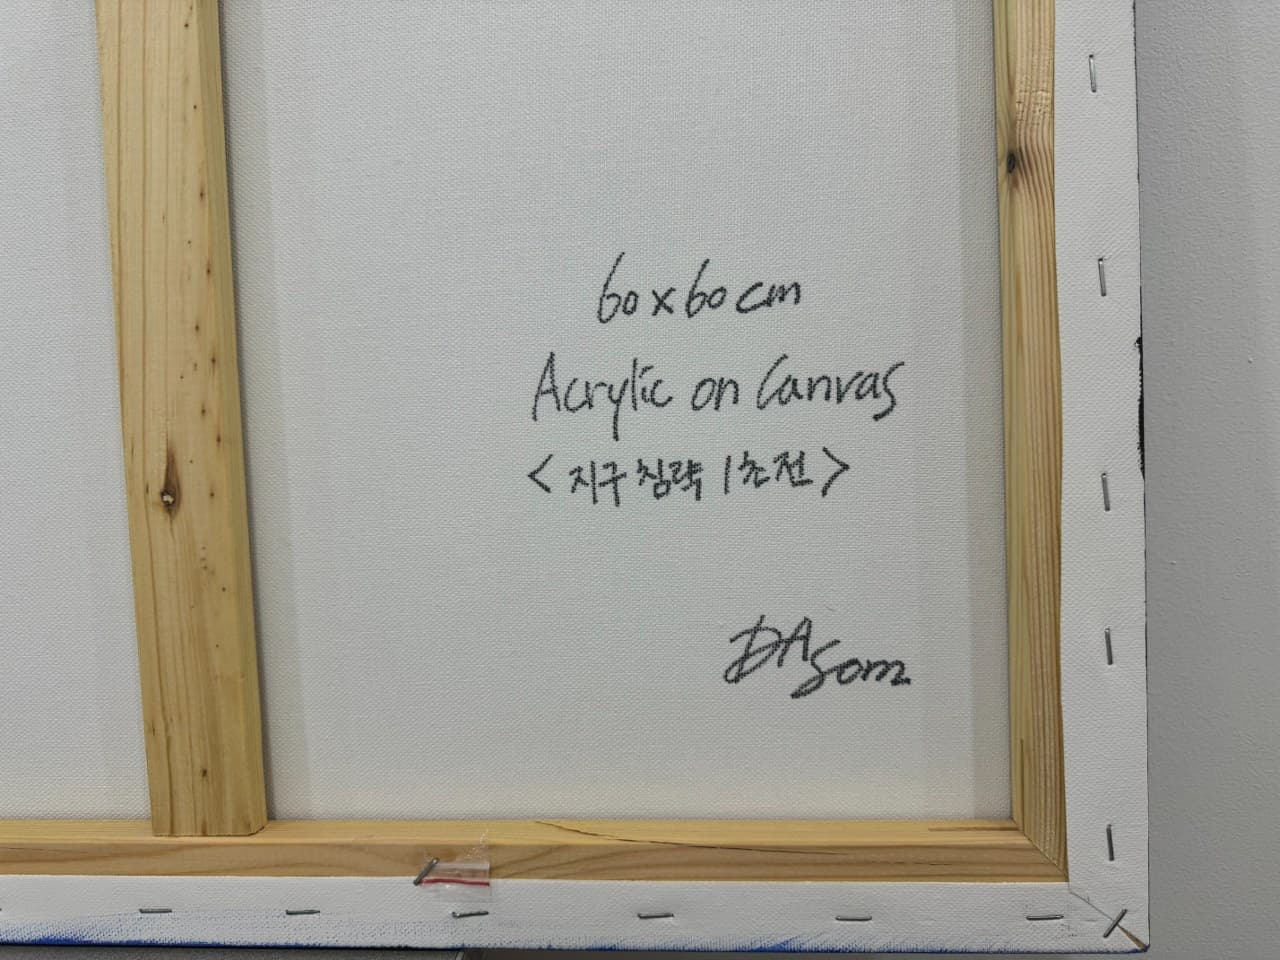 60x60cm
Acrylic on Canvas
<지구 침략 1초전>
DASom